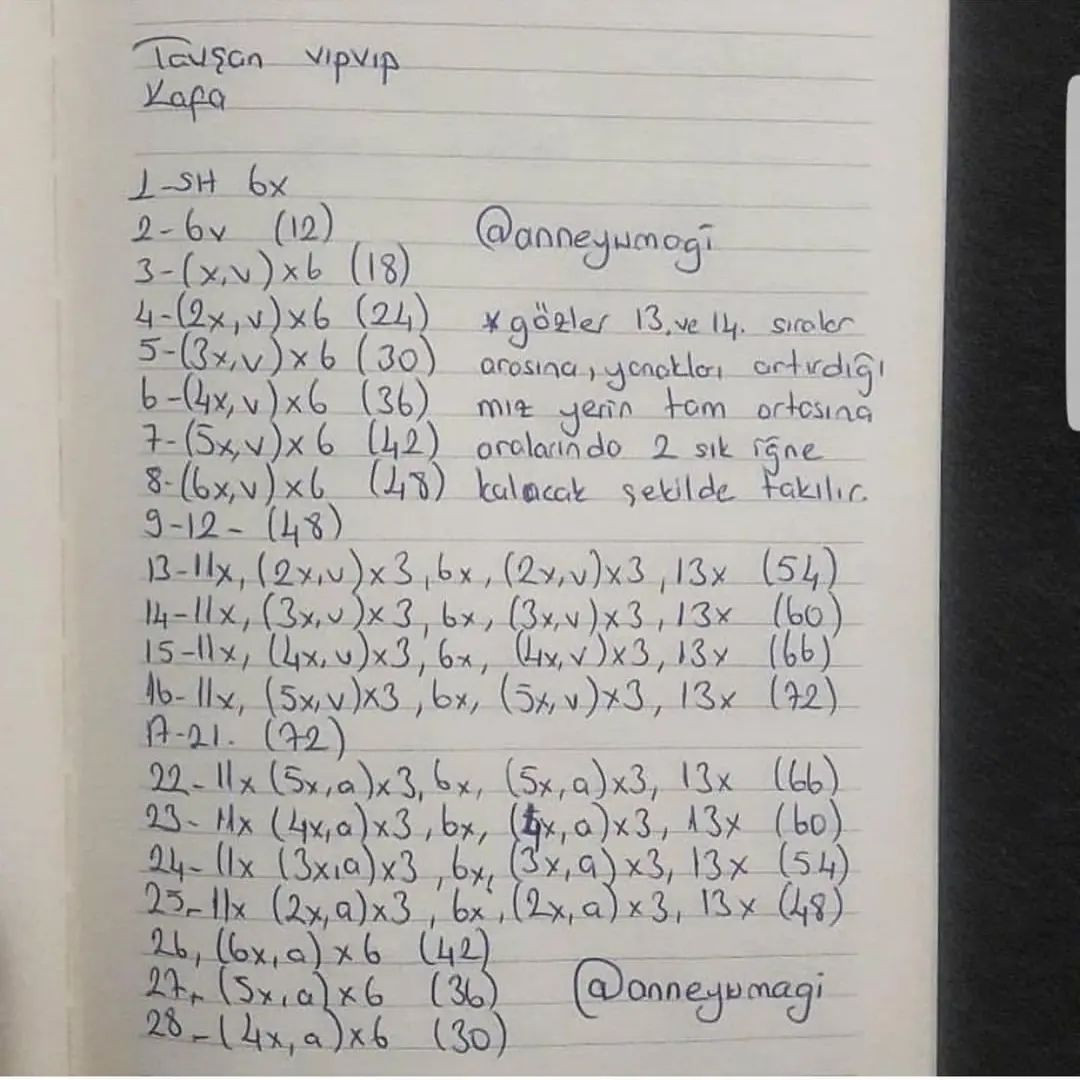 Tavşan vıpvıp
Kafa
1-SH 6x
2-6v (12)
@anneyumagi
3-(x,v)x6 (18)
4-(2x,v)x6 (24)
*gözler 13.ve 14. sıralar
5-(3x,v)x6 (30)
arasına, yanakları artırdığı
6-(4x,v)x6 (36)
mız yerin tam ortasına
7-(5x,v)x6 (42)
aralarında 2 sık iğne
8-(6x,v)x6 (48)
kalacak şekilde takılır.
9-12- (48)
13-11x, (2x,v)x3, 6x, (2x,v)x3, 13x (54)
14-11x, (3x,v)x3, 6x, (3x,v)x3, 13x (60)
15-11x, (4x,v)x3, 6x, (4x,v)x3, 13x (66)
16-11x, (5x,v)x3, 6x, (5x,v)x3, 13x (72)
17-21. (72)
22-11x (5x,a)x3, 6x, (5x,a)x3, 13x (66)
23-11x (4x,a)x3, 6x, (4x,a)x3, 13x (60)
24-11x (3x,a)x3, 6x, (3x,a)x3, 13x (54)
25-11x (2x,a)x3, 6x, (2x,a)x3, 13x (48)
26, (6x,a)x6 (42)
27- (5x,a)x6 (36)
@anneyumagi
28-(4x,a)x6 (30)